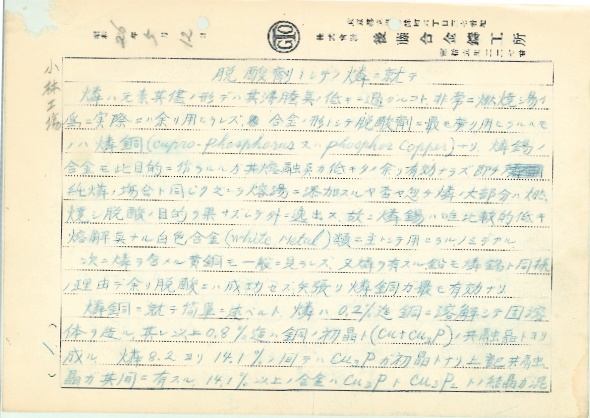 昭和26年5月12日
株式会社 後藤合金鑄工所
小林工場
脱酸剤トシテノ燐ニ就テ
燐ハ元素其儘ノ形デハ其沸騰点ノ低キニ過グルコト、非常ニ燃焼シ易イ
為ニ実際ニハ余リ用ヒラレズ、合金ノ形トシテ脱酸剤ニ最モ旁リ用ヒラルルモ
ノハ燐銅(cupro-phosphorus又ハphosphor copper)ナリ、燐錫ノ
合金モ此目的ニ 其熔融点力低キタメ余リ有効ナラズ即チ
純燐ノ場合ト同ジク之ニヲ熔湯ニ添加スルヤ否ヤ燐ノ大部分ハ燃
焼シ脱酸ノ目的ヲ果サズシテ外ニ逸出ス、故ニ燐錫ハ唯比較的低キ
熔解点ナル白色合金(white metal)類ニ主トシテ用ヒラルノミデアル
次ニ燐ヲ含メル黄銅モ一般ニ見ラレズ、又燐ヲ有スル鉛モ燐錫ト同様
ノ理由デ余リ脱酸ニハ成功セズ矢張リ燐銅力最モ有効ナリ
燐銅ニ就テ簡単ニ述ベルト、燐ハ0.2%迄銅ニ溶解シテ固溶
体ヲ造ル、其レ以上0.8%迄ハ銅ノ初晶ト(Cu+Cu3P)ノ共融晶トヨリ
成ル 燐8.2ヨリ14.1%ノ間デハCu3Pガ初晶トナリ上記共融
晶ガ共同ニ有スル、14.1%以上ノ合金ハCu3PトCu3P2トノ結晶カ混
(1)